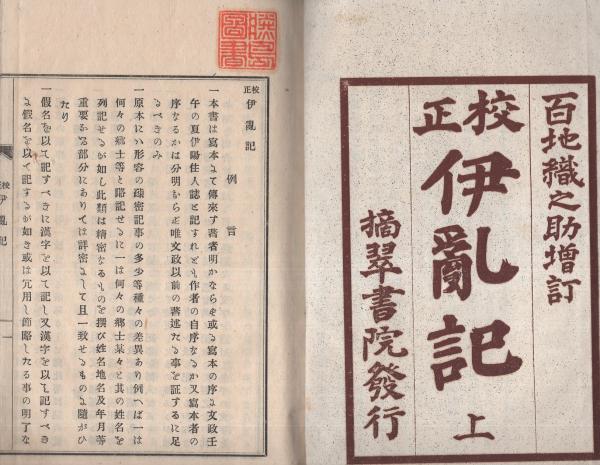 百地織之助增訂
校正
伊亂記
上
摘翠書院發行
校正 伊亂記
例言
一本書は寫本にて傳來す著者明かならず或る寫本の序に文政壬
午の夏伊陽住人誌と記すれども作者の自序なるか又寫本者の
序なるかは分明ならず唯文政以前の著述たる事を証するに足
るべきのみ
一原本にハ形容の疎密記事の多少等種々の差異あり例へば一は
何々の鄕士等と略記せるに一は何々の鄕士某々と其の姓名を
列記せるが如し此類は精密なるものを撰び姓名地名及年月等
重要なる部分にありては詳密にして且一致せるものに隨がひ
たり
一假名を以て記すべきに漢字を以て記し又漢字を以て記すべき
に假名を以て記するが如き或は冗用し節略したる事の明了な
校正 伊亂記
一